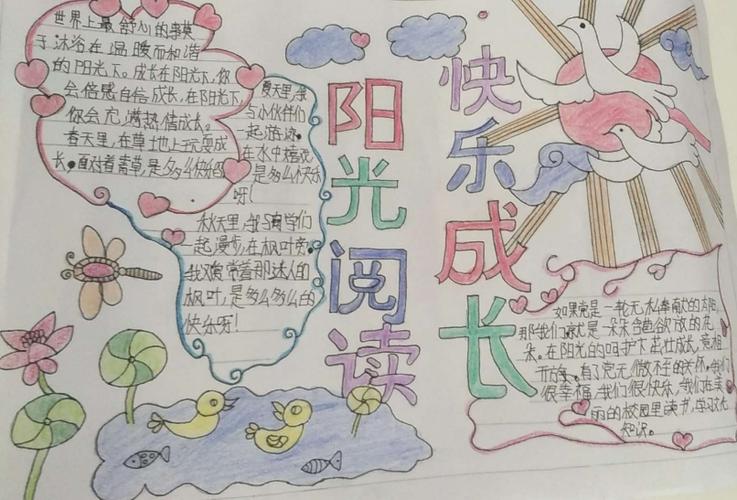 阳光阅读
快乐成长
世界上最舒心的事莫
于沐浴在温暖而和谐
的阳光下。成长在阳光下,你
会倍感自信成长。在阳光下,
你会充满热情成长。
春天里,在草地上玩耍成
长。面对着青草,是多么快
呀!
夏天里,
与小伙伴们
一起游泳。
在水中嬉戏
是多么快乐
呀!
秋天里,与同学们
一起漫步,在枫叶旁。
我观赏着那迷人的
枫叶,是多么多么的
快乐呀!
如果党是一轮无私奉献的太阳,
那我们就是一朵朵含苞欲放的花
朵。在阳光的呵护下茁壮成长,竞相
开放。有了您无微不至的关怀,我们
很幸福,我们很快乐,我们在美
丽的校园里读书,学习
知识。